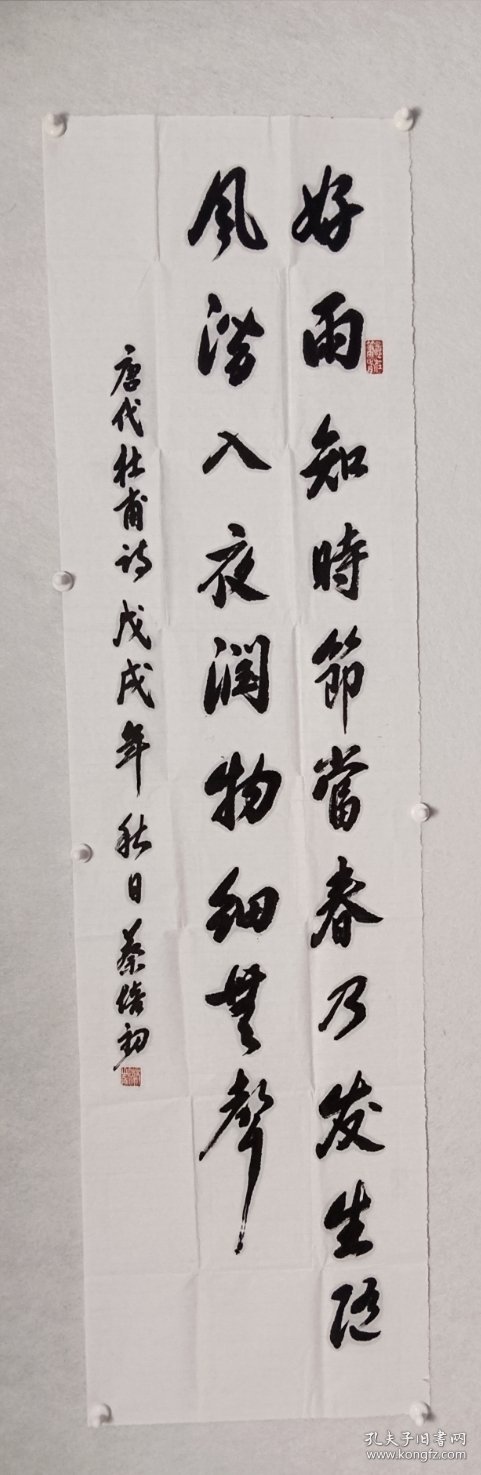 好雨知時節當春乃发生随
风潜入夜润物细無聲
唐代杜甫诗戊戌年秋日蔡培初
孔夫子旧书网
www.kongfz.com